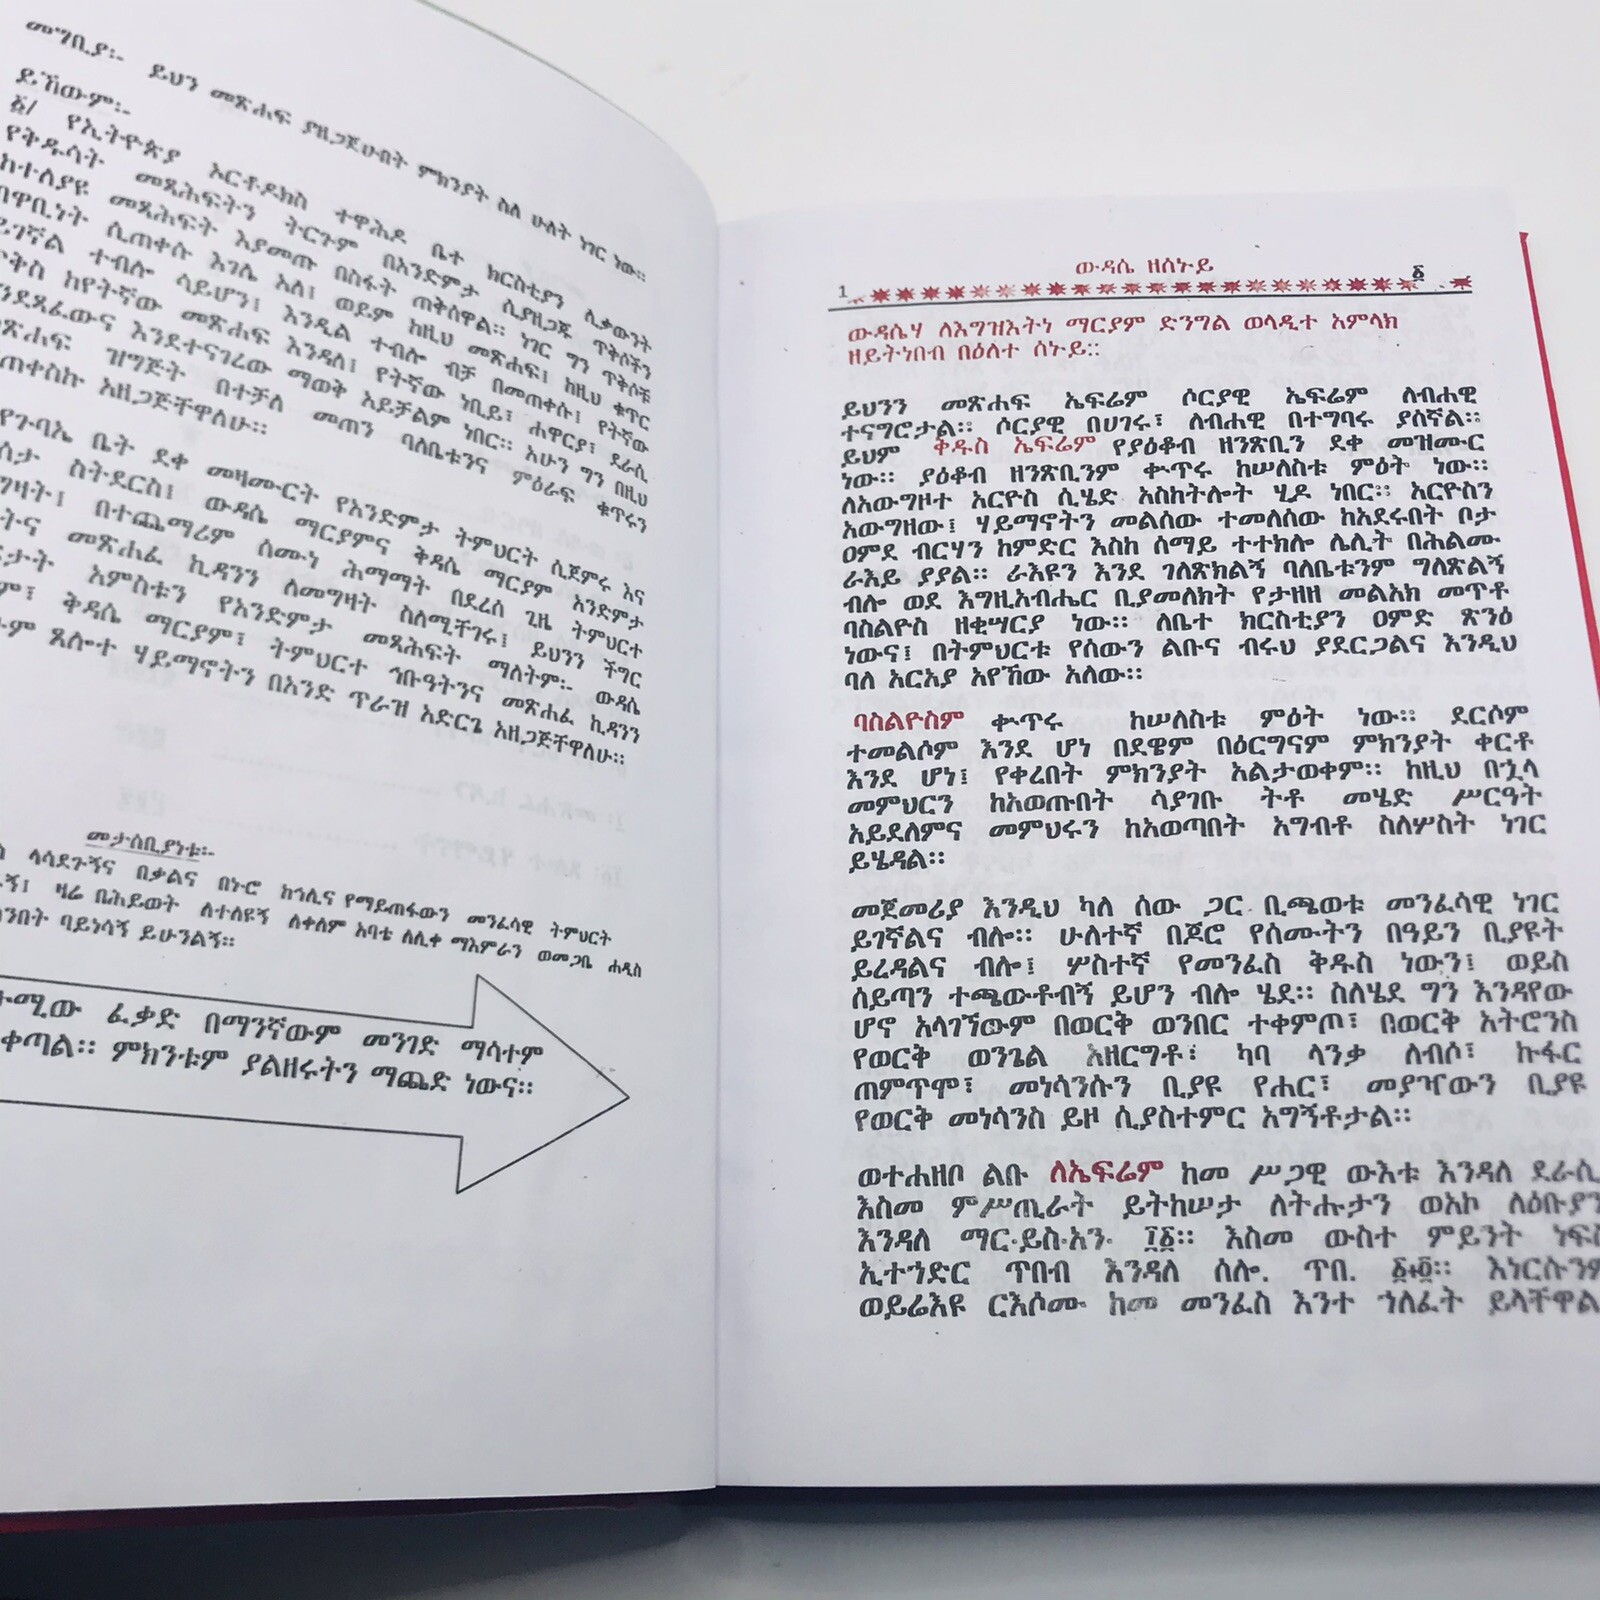 መግቢያ፡- ይህን መጽሐፍ ያዘጋጀሁበት ምክንያት ስለ ሁለት ነገር ነው፡፡
ይኸውም፡-
፩/ የኢትዮጵያ ኦርቶዶክስ ተዋሕዶ ቤተ ክርስቲያን ሊቃውንት
የቅዱሳት መጻሕፍትን ትርጉም በአንድምታ ሲያዘጋጁ ጥቅሶችን
ከተለያዩ መጻሕፍት እያመጡ በስፋት ጠቅሰዋል፡፡ ነገር ግን ጥቅሶቹ
ሲጠቀሱ እገሌ አለ፤ ወይም ከዚህ መጽሐፍ፤ ከዚህ ቁጥር
ተብሎ ሳይሆን፤ እንዲል ተብሎ ብቻ በመጠቀሱ፤ የትኛው
ከየትኛው መጽሐፍ እንዳለ፤ የትኛው ነቢይ፣ ሐዋርያ፣ ደራሲ
እንደተናገረው ማወቅ አይቻልም ነበር፡፡ አሁን ግን በዚህ
ዝግጅት በተቻለ መጠን ባለቤቱንና ምዕራፍ ቁጥሩን
አዘጋጅቸዋለሁ፡፡
የጉባኤ ቤት ደቀ መዛሙርት የአንድምታ ትምህርት ሲጀምሩ እና
ስትደርስ፤ ውዳሴ ማርያምና ቅዳሴ ማርያም አንድምታ
በተጨማሪም ሰሙነ ሕማማት በደረሰ ጊዜ ትምህርተ
መጽሐፈ ኪዳንን ለመግዛት ስለሚቸገሩ፤ ይህንን ችግር
አምስቱን የአንድምታ መጻሕፍት ማለትም፡- ውዳሴ
ቅዳሴ ማርያም፣ ትምህርተ ኅቡዓትንና መጽሐፈ ኪዳንን
ጸሎተ ሃይማኖትን በአንድ ጥራዝ አድርጌ አዘጋጅቸዋለሁ፡፡
መታሰቢያነቱ፡-
ላሳደጉኝና በቃልና በኑሮ ከኅሊና የማይጠፋውን መንፈሳዊ ትምህርት
ዛሬ በሕይወት ለተለዩኝ ለቀለም አባቴ ለሊቀ ማእምራን ወመጋቤ ሐዲስ
ባይነሳኝ ይሁንልኝ፡፡
ፈቃድ በማንኛውም መንገድ ማሳተም
ምክንቱም ያልዘሩትን ማጨድ ነውና፡፡
ውዳሴ ዘሰኑይ
1 ፩
ውዳሴሃ ለእግዝእትነ ማርያም ድንግል ወላዲተ አምላክ
ዘይትነበብ በዕለተ ሰኑይ፡፡
ይህንን መጽሐፍ ኤፍሬም ሶርያዊ ኤፍሬም ለብሐዊ
ተናግሮታል፡፡ ሶርያዊ በሀገሩ፣ ለብሐዊ በተግባሩ ያሰኛል፡፡
ይህም ቅዱስ ኤፍሬም የያዕቆብ ዘንጽቢን ደቀ መዝሙር
ነው፡፡ ያዕቆብ ዘንጽቢንም ቍጥሩ ከሠለስቱ ምዕት ነው፡፡
ለአውግዞተ አርዮስ ሲሄድ አስከትሎት ሂዶ ነበር፡፡ አርዮስን
አውግዘው፤ ሃይማኖትን መልሰው ተመለሰው ከአደሩበት ቦታ
ዐምደ ብርሃን ከምድር እስከ ሰማይ ተተክሎ ሌሊት በሕልሙ
ራእይ ያያል፡፡ ራእዩን እንደ ገለጽክልኝ ባለቤቱንም ግለጽልኝ
ብሎ ወደ እግዚአብሔር ቢያመለክት የታዘዘ መልአክ መጥቶ
ባስልዮስ ዘቂሣርያ ነው፡፡ ለቤተ ክርስቲያን ዐምድ ጽንዕ
ነውና፤ በትምህርቱ የሰውን ልቡና ብሩህ ያደርጋልና እንዲህ
ባለ አርአያ አየኸው አለው፡፡
ባስልዮስም ቍጥሩ ከሠለስቱ ምዕት ነው፡፡ ደርሶም
ተመልሶም እንደ ሆነ በደዌም በዕርግናም ምክንያት ቀርቶ
እንደ ሆነ፤ የቀረበት ምክንያት አልታወቀም፡፡ ከዚህ በኋላ
መምህርን ከአወጡበት ሳያገቡ ትቶ መሄድ ሥርዓት
አይደለምና መምህሩን ከአወጣበት አግብቶ ስለሦስት ነገር
ይሄዳል፡፡
መጀመሪያ እንዲህ ካለ ሰው ጋር ቢጫወቱ መንፈሳዊ ነገር
ይገኛልና ብሎ፡፡ ሁለተኛ በጆሮ የሰሙትን በዓይን ቢያዩት
ይረዳልና ብሎ፤ ሦስተኛ የመንፈስ ቅዱስ ነውን፤ ወይስ
ሰይጣን ተጫውቶብኝ ይሆን ብሎ ሄደ፡፡ ስለሄደ ግን እንዳየው
ሆኖ አላገኘውም በወርቅ ወንበር ተቀምጦ፣ በወርቅ አትሮንስ
የወርቅ ወንጌል አዘርግቶ፣ ካባ ላንቃ ለብሶ፣ ኩፋር
ጠምጥሞ፣ መነሳንሱን ቢያዩ የሐር፣ መያዣውን ቢያዩ
የወርቅ መነሳንስ ይዞ ሲያስተምር አግኝቶታል፡፡
ወተሐዘቦ ልቡ ለኤፍሬም ከመ ሥጋዊ ውእቱ እንዳለ ደራሲ
እስመ ምሥጢራት ይትከሠታ ለትሑታን ወአኮ ለዕቡያን
እንዳለ ማር.ይስ.አን. ፲፩፡፡ እስመ ውስተ ምይንት ነፍስ
ኢተኀድር ጥበብ እንዳለ ሰሎ. ጥበ. ፩፥፬፡፡ እነርሱንም
ወይሬእዩ ርእሶሙ ከመ መንፈስ እንተ ኀለፈት ይላቸዋል